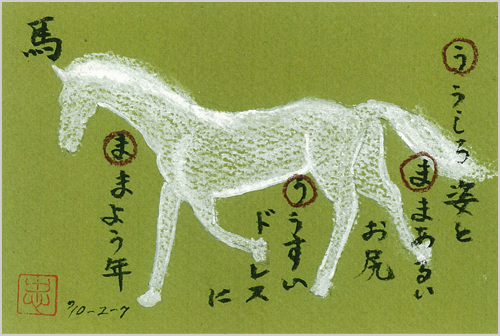 馬
う うしろ姿と
ま まあるい
お尻
う うすい
ドレスに
ま まよう年
忠
'10-2-7